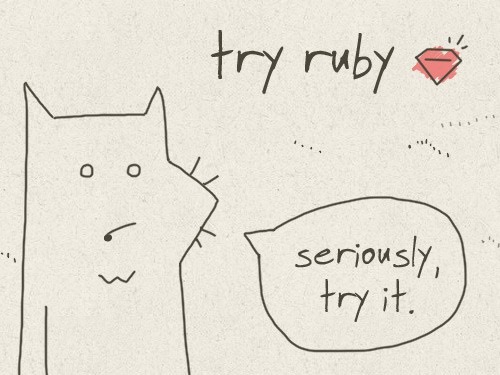 try ruby
seriously,
try it.